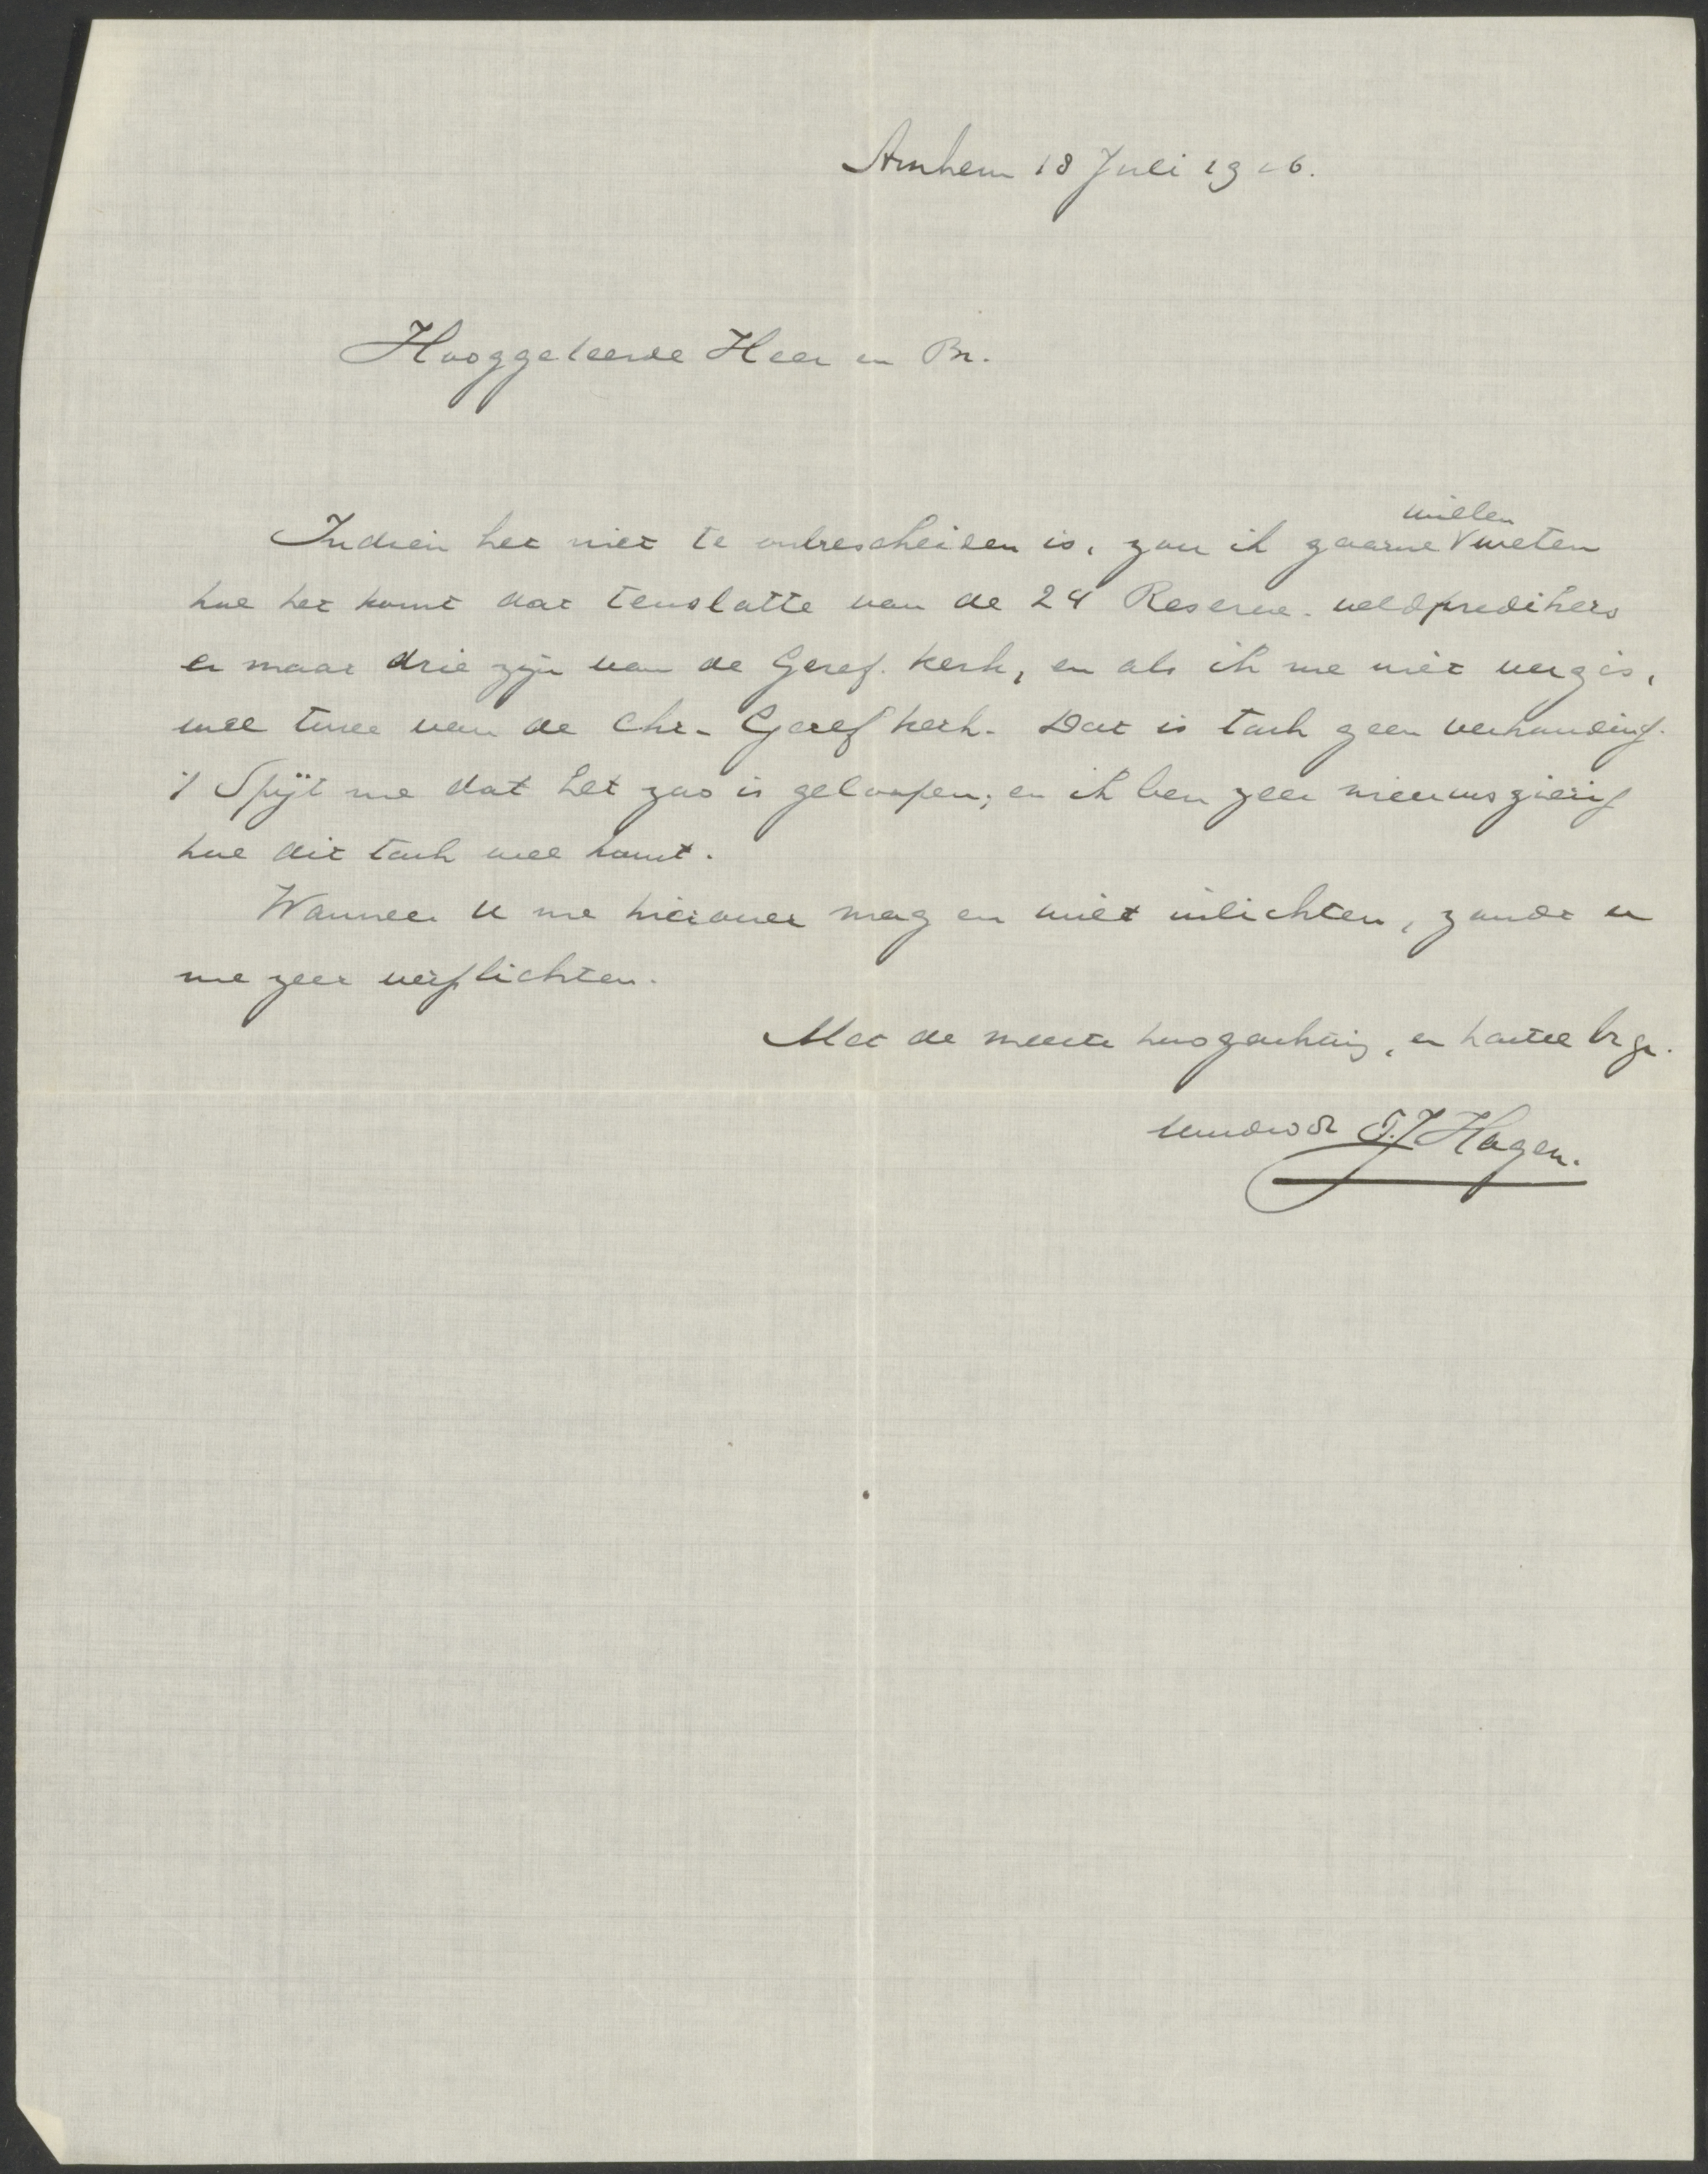 Arnhem 18 Juli 1926.
Hooggeleerde Heer en Br.
Indien het niet te onbescheiden is, zou ik gaarne willen weten
hoe het komt dat tenslotte van de 24 Reserve-veldpredikers
er maar drie zijn van de Geref. Kerk, en als ik me niet vergis,
wel twee van de Chr. Geref Kerk. Dat is toch geen verhouding.
't Spijt me dat het zoo is geloopen; en ik ben zeer nieuwsgierig
hoe dit toch wel komt.
Wanneer U me hierover mag en wilt inlichten, zoudt u
me zeer verplichten.
Met de meeste hoogachting, en hartel br gr.
Uw dw dr T.J Hagen.